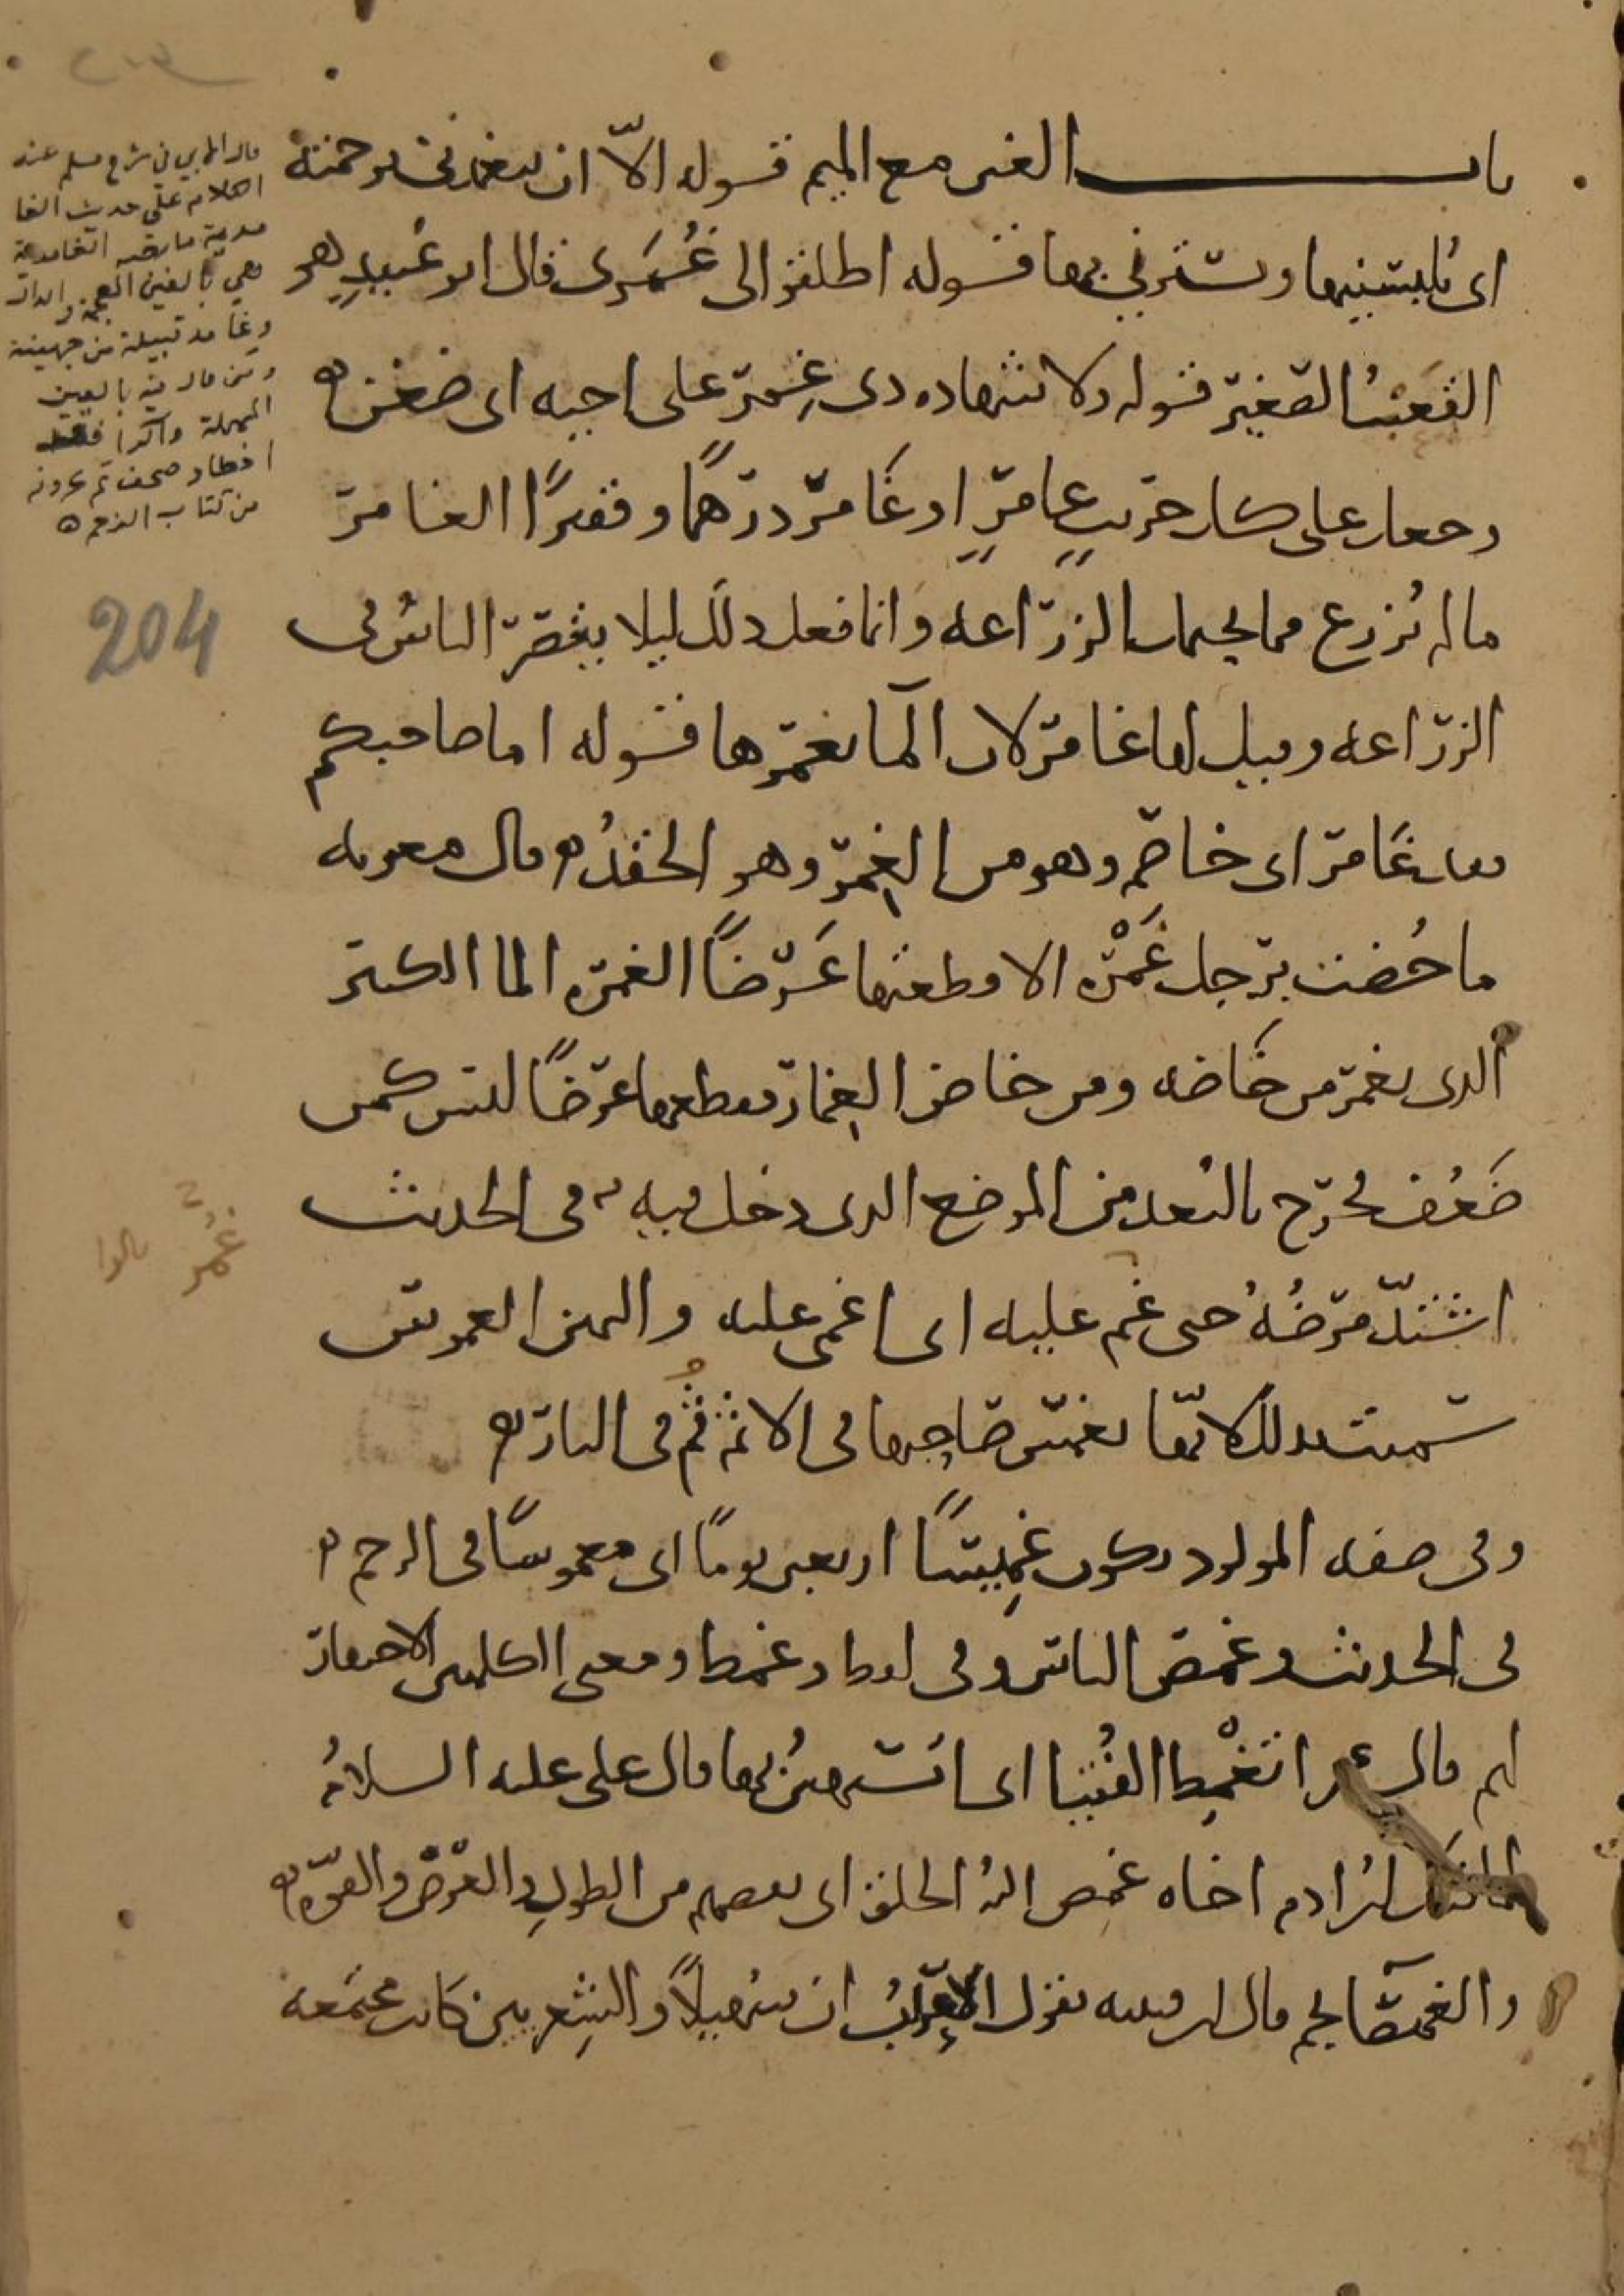 باب الغين مع الميم قوله الا ان يتغمدني برحمته
اي يلبسنيها ويسترني بها قوله اطلقوا الي غمري قال ابو عبيد هو
القعب الصغير قوله ولا شهادة ذي غمر على اخيه اي ضغن
وجعل على كل جريب عامر او غامر درهما وقفيزا الغامر
ما لم يزرع مما يحتمل الزراعة وانما فعل ذلك ليلا يقصر الناس في
الزراعة وقيل لها غامر لان الماء يغمرها قوله اما صاحبكم
فقد غامر اي خاصم وهو من الغمر وهو الحقد قال معوية
ما خضت برجل غمرة الا قطعتها عرضا الغمرة الماء الكثير
الذي يغمر من خاضه ومن خاض الغمار فقطعها عرضا ليس كمن
ضعف فخرج بالبعد من الموضع الذي دخل فيه في الحديث
اشتد مرضه حتى غم عليه اي اغمي عليه واليمين الغموس
سميت بذلك لانها تغمس صاحبها في الاثم ثم في النار
وفي صفة المولود يكون غميسا اربعين يوما اي مغموسا في الرحم
في الحديث وغمص الناس وفي لفظ وغمط ومعنى الكلمتين الاحتقار
لهم قال عمر اتغمط الفتيا اي اتستهين بها قال علي عليه السلام
لما قتل ابن ادم اخاه غمص الله الخلق اي نقصهم من الطول والعرض والقوة
والغميصا نجم قال ابن قتيبة تقول الاعراب ان سهيلا والشعريين كانت مجتمعة
قال المازري في شرح مسلم عند
الكلام على حديث الغا
مدية ما نصه الغامدية
وهي بالغين المعجمة والدال
وغامد قبيلة من جهينة
ومن قال فيه بالعين
المهملة والرا فقد
اخطا وصحف
من كتاب الرجم
204
غمر